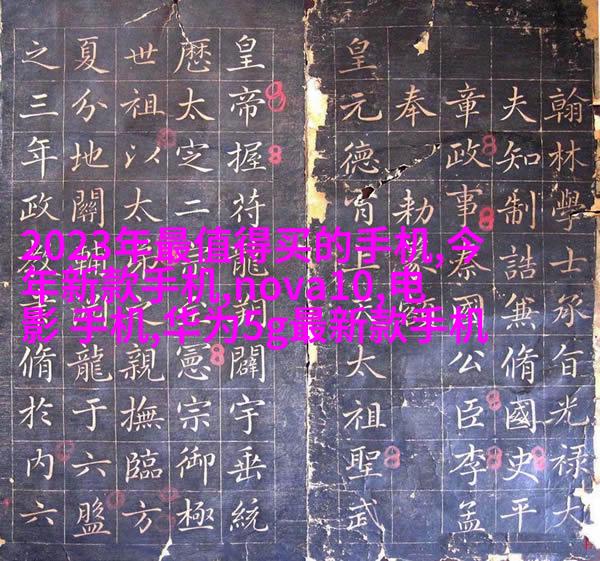 翰林學士承旨光祿大
夫知制誥兼脩國史平
章政事國公臣李孟
奉勑
皇元德太祖聖武
皇帝握符龍闢宇垂統
厯太㝎二憲宗御極
世祖以太弟之親撫臨方
夏分地關輔龍于六盤
之三年政教脩於內六
2023年最值得买的手机,今
年新款手机,nova10,电
影 手机,华为5g最新款手机